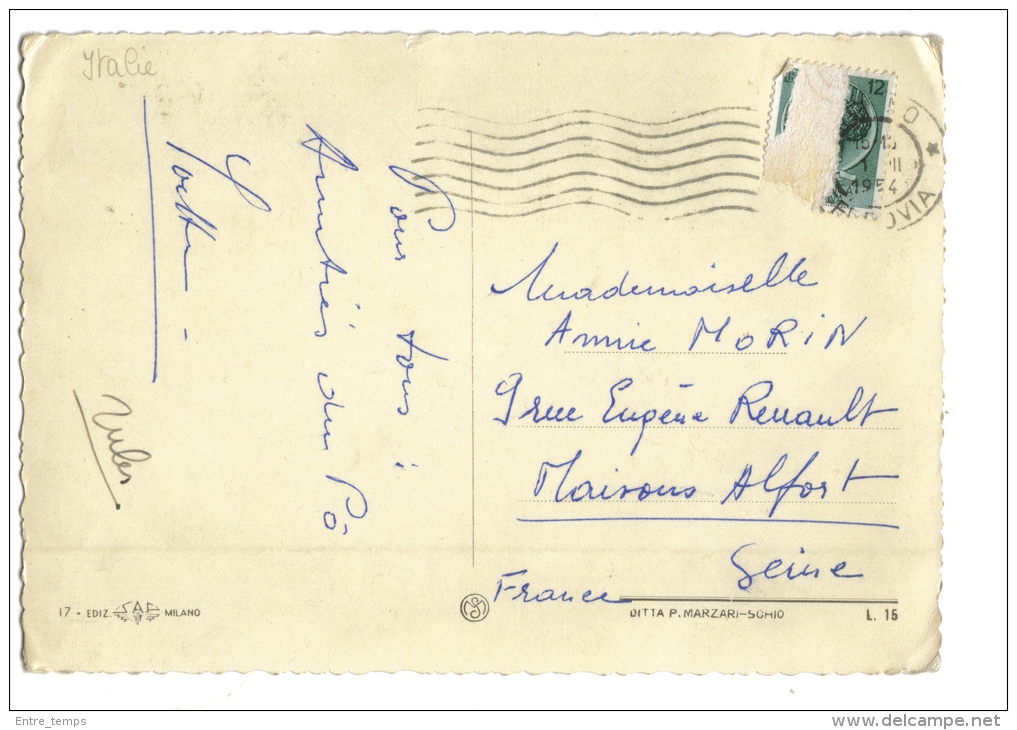 Italie
Pour tous :
Amitiés du Pô
Jules
12
1954
Mademoiselle
Annie MORIN
9 rue Eugène Renault
Maisons Alfort
Seine
France
17 - EDIZ. SAF MILANO
DITTA P. MARZARI-SCHIO
L. 15
Entre_temps
delcampe.net